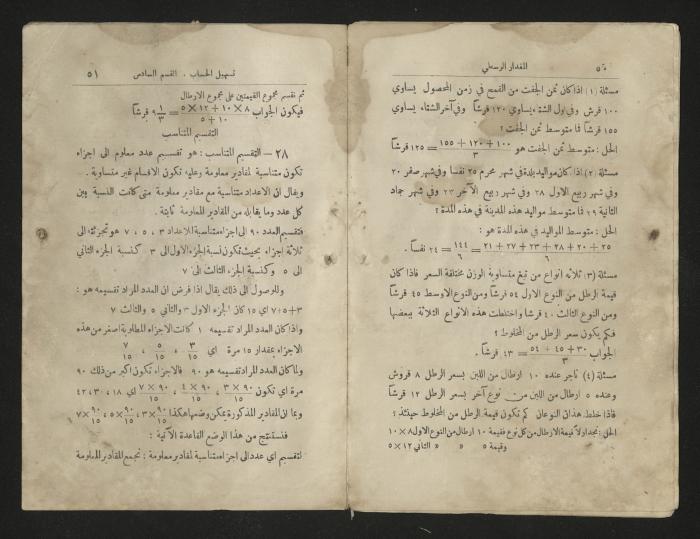 ٥٠ المقدار الوسطي
مسئلة (١) اذا كان ثمن الجفت من القمح في زمن المحصول يساوي
١٠٠ قرش وفي اول الشتاء يساوي ١٢٠ قرشاً وفي آخر الشتاء يساوي
١٥٥ قرشاً فما متوسط ثمن الجفت؟
الحل : متوسط ثمن الجفت هو (١٠٠ + ١٢٠ + ١٥٥)/٣ = ١٢٥ قرشاً
مسئلة (٢) اذا كان مواليد بلدة في شهر محرم ٢٥ نفساً وفي شهر صفر ٢٠
وفي شهر ربيع الاول ٢٨ وفي شهر ربيع الآخر ٢٣ وفي شهر جماد
الثانية ٢٩ فما متوسط مواليد هذه المدينة في هذه المدة؟
الحل : متوسط المواليد في هذه المدة هو :
(٢٥ + ٢٠ + ٢٨ + ٢٣ + ٢٧ + ٢١)/٦ = ١٤٤/٦ = ٢٤ نفساً .
مسئلة (٣) ثلاثة انواع من تبغ متساوية الوزن مختلفة السعر فاذا كان
قيمة الرطل من النوع الاول ٥٤ قرشاً ومن النوع الاوسط ٤٥ قرشاً
ومن النوع الثالث ٣٠ قرشاً واختلطت هذه الانواع الثلاثة ببعضها
فكم يكون سعر الرطل من المخلوط؟
الجواب (٣٠ + ٤٥ + ٥٤)/٣ = ٤٣ قرشاً .
مسئلة (٤) تاجر عنده ١٠ ارطال من اللبن بسعر الرطل ٨ قروش
وعنده ٥ ارطال من اللبن من نوع آخر بسعر الرطل ١٢ قرشاً
فاذا خلط هذان النوعان كم تكون قيمة الرطل من المخلوط حينئذ؟
الحل : نجد اولاً قيمة الارطال من كل نوع فقيمة ١٠ ارطال من النوع الاول ٨×١٠
وقيمة ٥ » » الثاني ١٢×٥
تسهيل الحساب . القسم السادس ٥١
ثم نقسم مجموع القيمتين على مجموع الارطال
فيكون الجواب (٨×١٠ + ١٢×٥)/(١٠+٥) = ٩ ١/٣ قرشاً
التقسيم المتناسب
٢٨ – التقسيم المتناسب : هو تقسيم عدد معلوم الى اجزاء
تكون متناسبة لمقادير معلومة وعليه تكون الاقسام غير متساوية .
ويقال ان الاعداد متناسبة مع مقادير معلومة متى كانت النسبة بين
كل عدد وما يقابله من المقادير المعلومة ثابتة .
فتقسيم العدد ٩٠ الى اجزاء متناسبة للاعداد ٣ ، ٥ ، ٧ هو تجزئته الى
ثلاثة اجزاء بحيث تكون نسبة الجزء الاول الى ٣ كنسبة الجزء الثاني
الى ٥ وكنسبة الجزء الثالث الى ٧
وللوصول الى ذلك يقال اذا فرض ان العدد المراد تقسيمه هو :
٣+٥+٧ اي ١٥ كان الجزء الاول ٣ والثاني ٥ والثالث ٧
واذا كان العدد المراد تقسيمه ١ كانت الاجزاء المطلوبة اصغر من هذه
الاجزاء بمقدار ١٥ مرة اي ٣/١٥ ، ٥/١٥ ، ٧/١٥
ولما كان العدد المراد تقسيمه هو ٩٠ فالاجزاء تكون اكبر من ذلك ٩٠
مرة اي تكون (٩٠×٣)/١٥ ، (٩٠×٤)/١٥ ، (٩٠×٧)/١٥ اي ١٨ ، ٣٠ ، ٤٢
وبما ان المقادير المذكورة يمكن وضعها هكذا ٩٠/١٥×٣ ، ٩٠/١٥×٥ ، ٩٠/١٥×٧
فنستنتج من هذا الوضع القاعدة الآتية :
لتقسيم اي عدد الى اجزاء متناسبة لمقادير معلومة : نجمع المقادير المعلومة